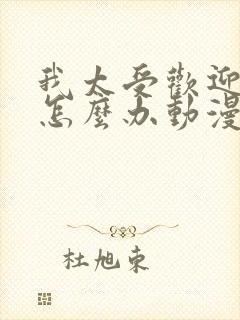 我太受歡迎
怎麼办動漫
杜旭東